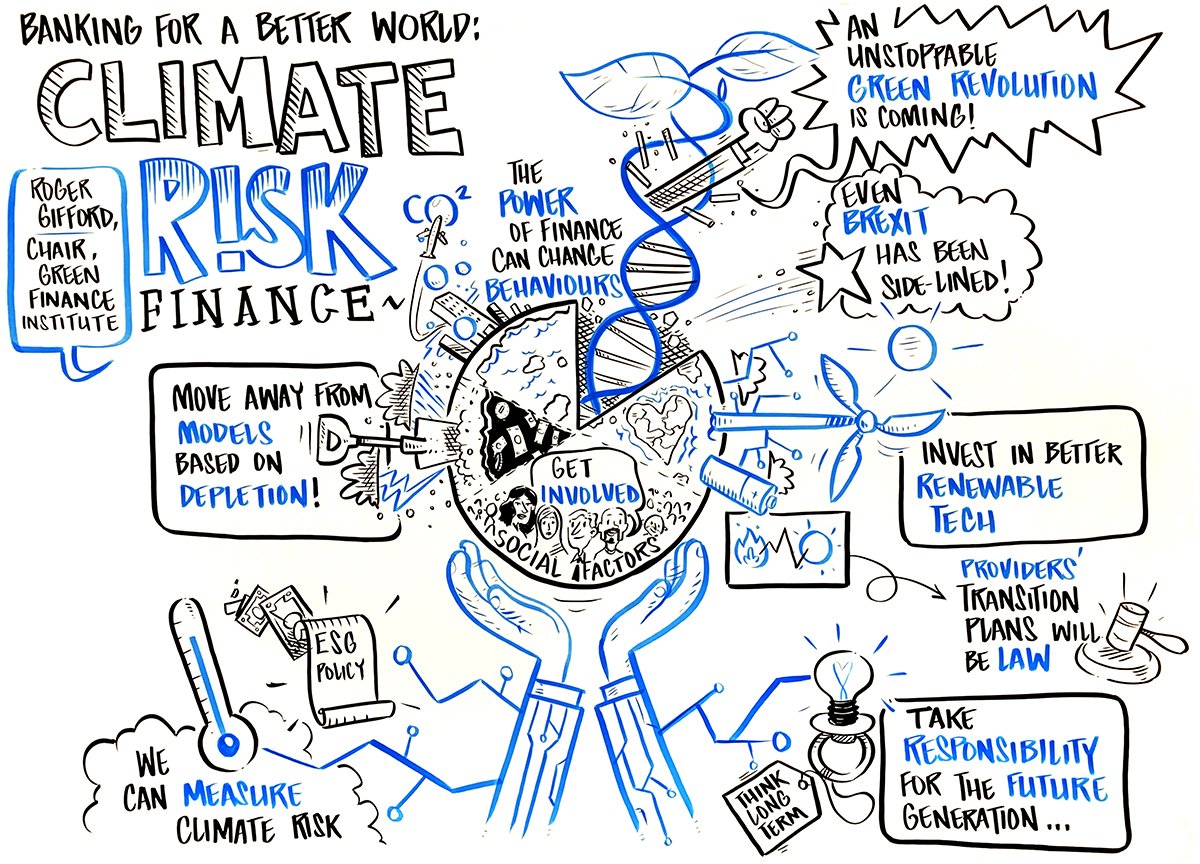 BANKING FOR A BETTER WORLD:
CLIMATE
R!SK
FINANCE~
ROGER
GIFFORD,
CHAIR,
GREEN
FINANCE
INSTITUTE
CO²
THE
POWER
OF FINANCE
CAN CHANGE
BEHAVIOURS
AN
UNSTOPPABLE
GREEN REVOLUTION
IS COMING!
EVEN
BREXIT
HAS BEEN
SIDE-LINED!
MOVE AWAY FROM
MODELS
BASED ON
DEPLETION!
GET
INVOLVED
SOCIAL FACTORS
INVEST IN BETTER
RENEWABLE
TECH
PROVIDERS'
TRANSITION
PLANS WILL
BE LAW
ESG
POLICY
WE
CAN MEASURE
CLIMATE RISK
THINK
LONG
TERM
TAKE
RESPONSIBILITY
FOR THE FUTURE
GENERATION...